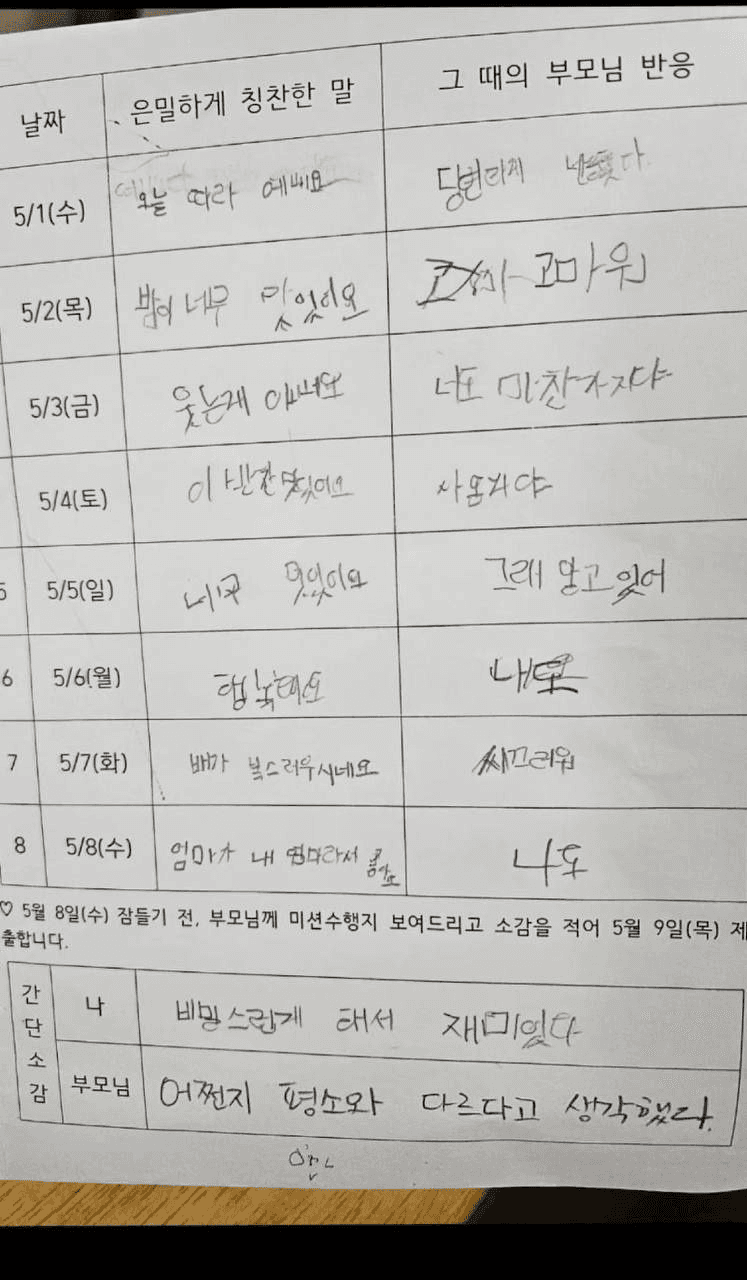 날짜 은밀하게 칭찬한 말 그 때의 부모님 반응
5/1(수) 오늘 따라 예뻐요
5/2(목) 밥이 너무 맛있어요 고마워
5/3(금) 웃는게 너도 마찬가지야
5/4(토) 이 반찬 맛있어요
5/5(일) 그래 알고 있어
6 5/6(월) 행복해요 나도
7 5/7(화) 배가 복스러우시네요 씨끄러워
8 5/8(수) 엄마가 내 엄마라서 나도
♡ 5월 8일(수) 잠들기 전, 부모님께 미션수행지 보여드리고 소감을 적어 5월 9일(목) 제
출합니다.
간단소감
나 비밀스럽게 해서 재미있다
부모님 어쩐지 평소와 다르다고 생각했다.